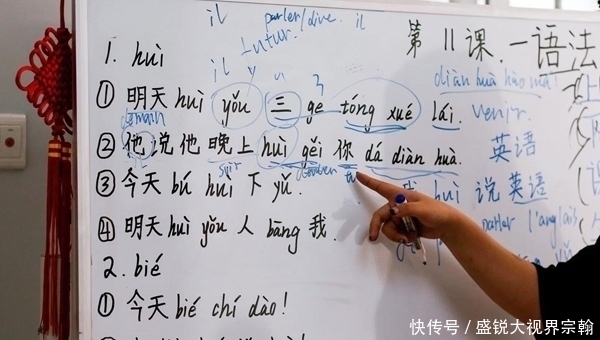 il parler/dire. il
futur.
第 11 课. — 语法
1. huì
il y a
diàn huà hào mǎ!
① 明天 huì yǒu 三 ge tóng xué lái. venir.
demain
② 他说他晚上 huì gěi 你 dá diàn huà. 英语
soir donner tu
③ 今天 bú huì 下 yǔ. huì 说英语
④ 明天 huì yǒu 人 bāng 我. parler l'anglais
2. bié
① 今天 bié chí dào!
快传号 / 盛锐大视界宗翰